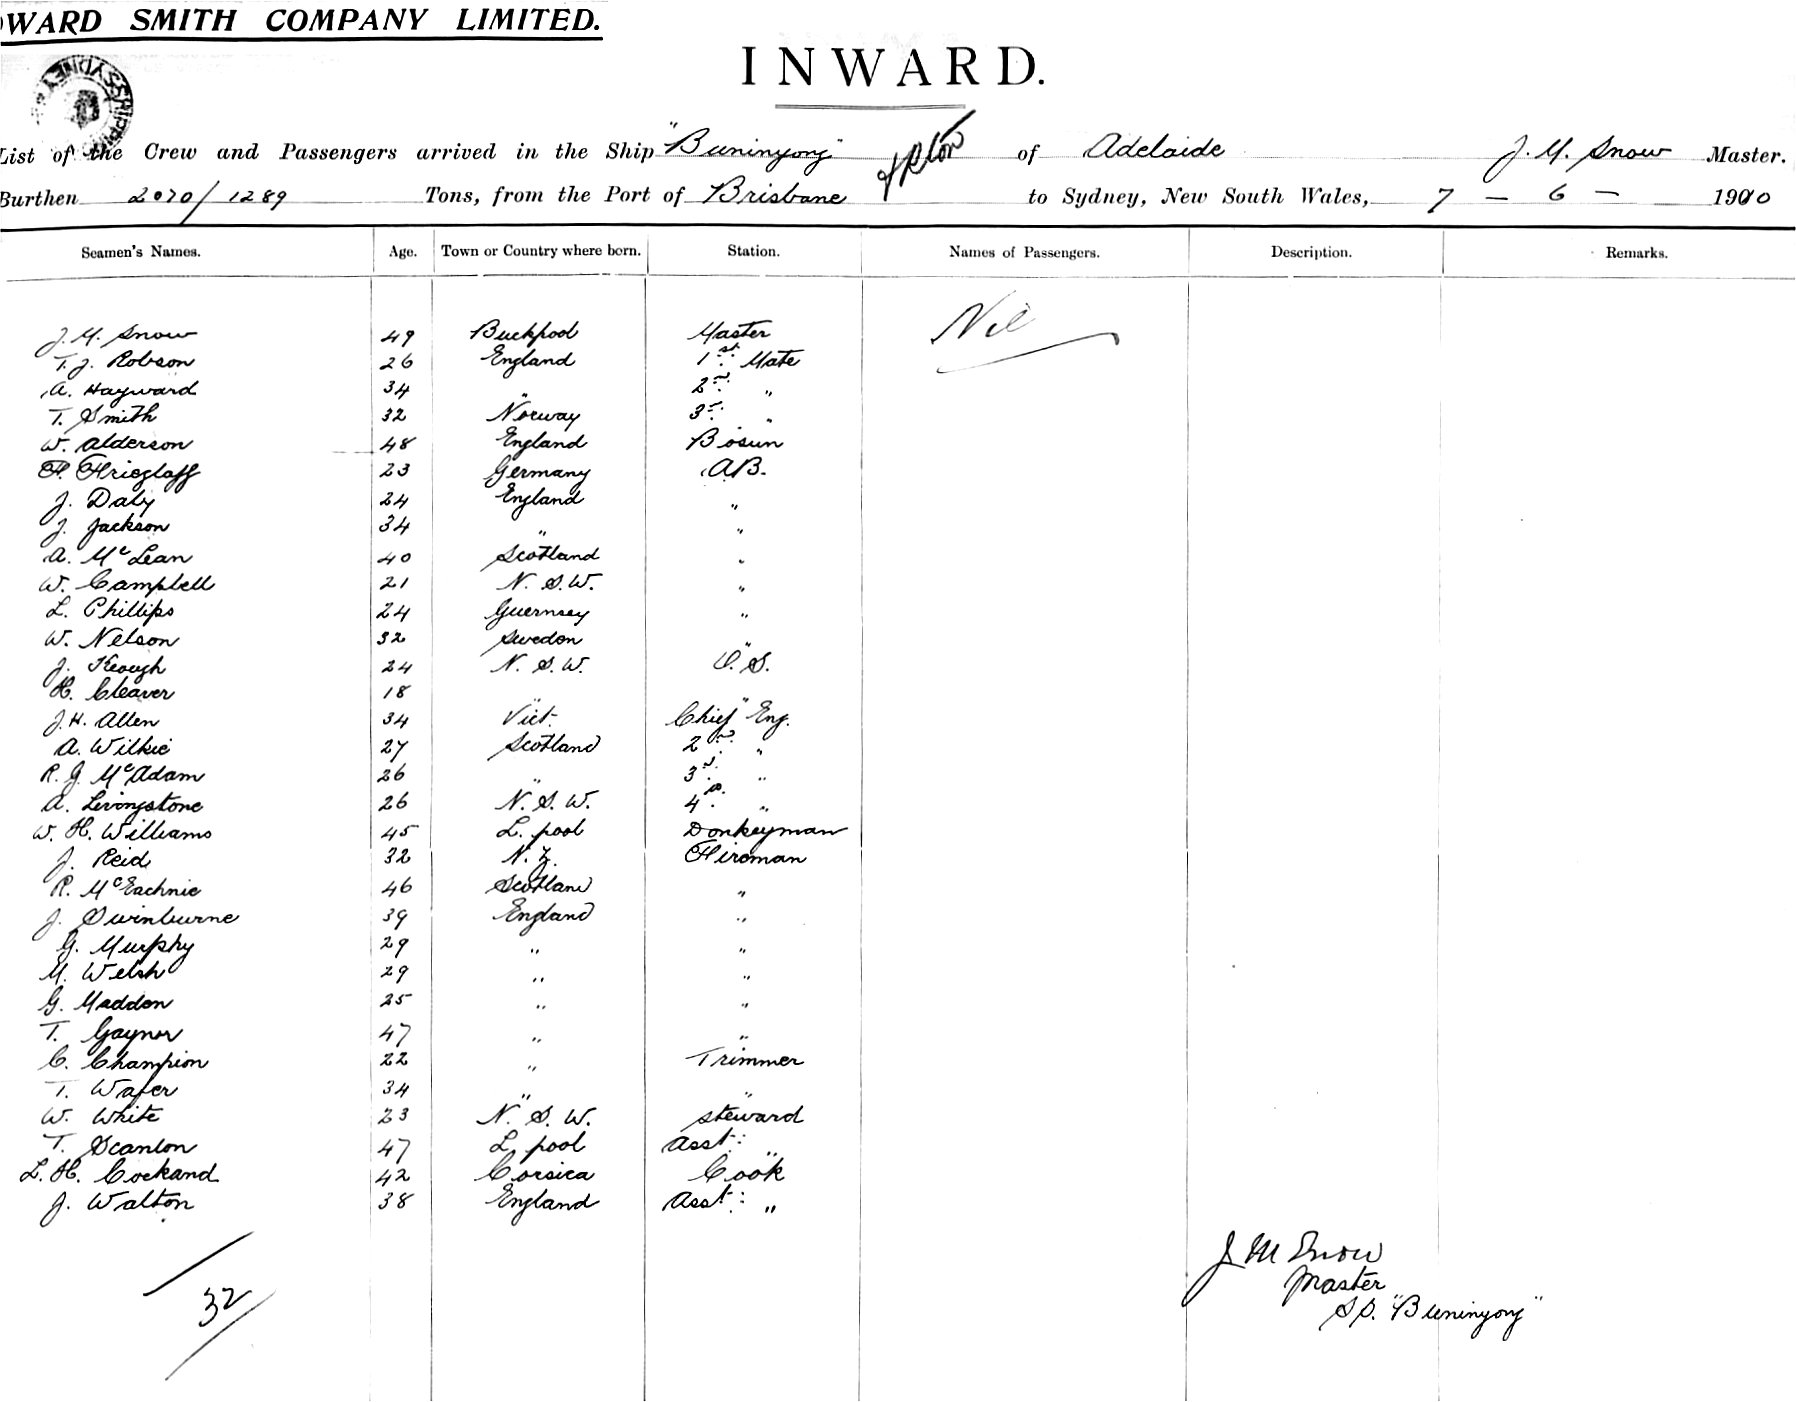 OWARD SMITH COMPANY LIMITED.
INWARD.
List of the Crew and Passengers arrived in the Ship "Buninyong" of Adelaide J. M. Snow Master.
Burthen 2070/1289 Tons, from the Port of Brisbane to Sydney, New South Wales, 7 - 6 - 1900
Seamen's Names. Age. Town or Country where born. Station. Names of Passengers. Description. Remarks.
J. M. Snow 49 Master Nil
T. J. Robson 26 England 1st. Mate
A. Hayward 34 " 2nd. "
T. Smith 32 Norway 3rd. "
W. Alderson 48 England Bosun
23 Germany A.B.
J. Daly 24 England "
J. Jackson 34 " "
A. McLean 40 Scotland "
W. Campbell 21 N. S. W. "
L. Phillips 24 Guernsey "
W. Nelson 32 Sweden "
J. Keough 24 N. S. W. O. S.
H. Cleaver 18 " "
J. H. Allen 34 Vict. Chief Eng.
A. Wilkie 27 Scotland 2nd. "
R. J. McAdam 26 " 3rd. "
A. Livingstone 26 N. S. W. 4th. "
W. H. Williams 45 L. pool Donkeyman
J. Reid 32 N. Z. Fireman
R. McEachnie 46 Scotland "
J. Swinburne 39 England "
G. Murphy 29 " "
M. Welsh 29 " "
G. Madden 25 " "
T. Gaynor 47 " "
C. Champion 22 " Trimmer
T. Wafer 34 " "
W. White 23 N. S. W. Steward
T. Scanlon 47 L. pool Asst: "
L. H. Cockand 42 Corsica Cook
J. Walton 38 England Asst: "
32
J M Snow
Master
S S. "Buninyong"